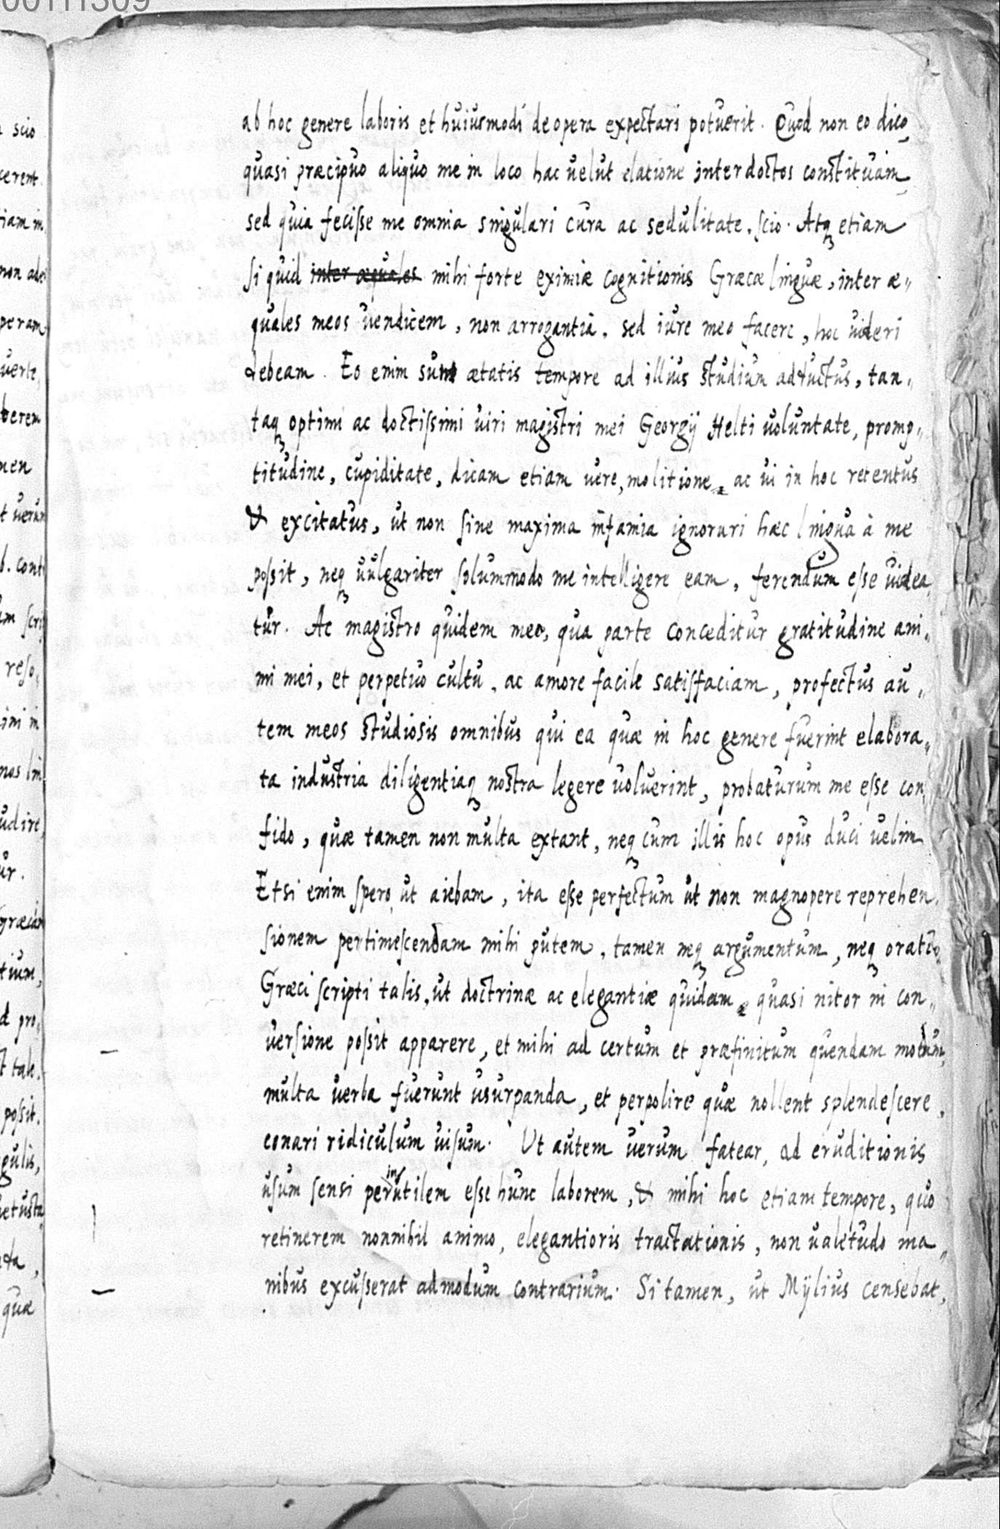 00111309
ab hoc genere laboris et huiusmodi de opera expectari potuerit. Quod non eo dico,
quasi præcipuo aliquo me in loco hac uelut elatione inter doctos constituam,
sed quia fecisse me omnia singulari cura ac sedulitate, scio. Atq etiam
si quid inter æquales mihi forte eximiæ cognitionis Græcæ linguæ, inter æ,,
quales meos uendicem, non arrogantia, sed iure meo facere, hoc uideri
debeam. Eo enim sum ætatis tempore ad illius studium adductus, tan,,
taq optimi ac doctissimi uiri magistri mei Georgij Helti uoluntate, promp,,
titudine, cupiditate, dicam etiam uere, molitione, ac ui in hoc retentus
& excitatus, ut non sine maxima infamia ignorari hæc lingua à me
possit, neq uulgariter solummodo me intelligere eam, ferendum esse uidea,
tur. Ac magistro quidem meo, qua parte conceditur gratitudine ani,,
mi mei, et perpetuo cultu, ac amore facile satisfaciam, profectus au,,
tem meos studiosis omnibus qui ea quæ in hoc genere fuerint elabora,,
ta industria diligentiaq nostra legere uoluerint, probaturum me esse con,
fido, quæ tamen non multa extant, neq cum illis hoc opus duci uelim
Etsi enim spero, ut aiebam, ita esse perfectum ut non magnopere reprehen,
sionem pertimescendam mihi putem, tamen neq argumentum, neq oratio
Græci scripti talis, ut doctrinæ ac elegantiæ quidam, quasi nitor in con,,
uersione possit apparere, et mihi ad certum et præfinitum quendam modum,
multa uerba fuerunt usurpanda, et perpolire quæ nollent splendescere,
conari ridiculum uisum. Ut autem uerum fatear, ad eruditionis
usum sensi perinutilem esse hunc laborem, & mihi hoc etiam tempore, quo
retinerem nonnihil animo, elegantioris tractationis, non ualetudo ma,,
nibus excusserat admodum contrarium. Si tamen, ut Mÿlius censebat,